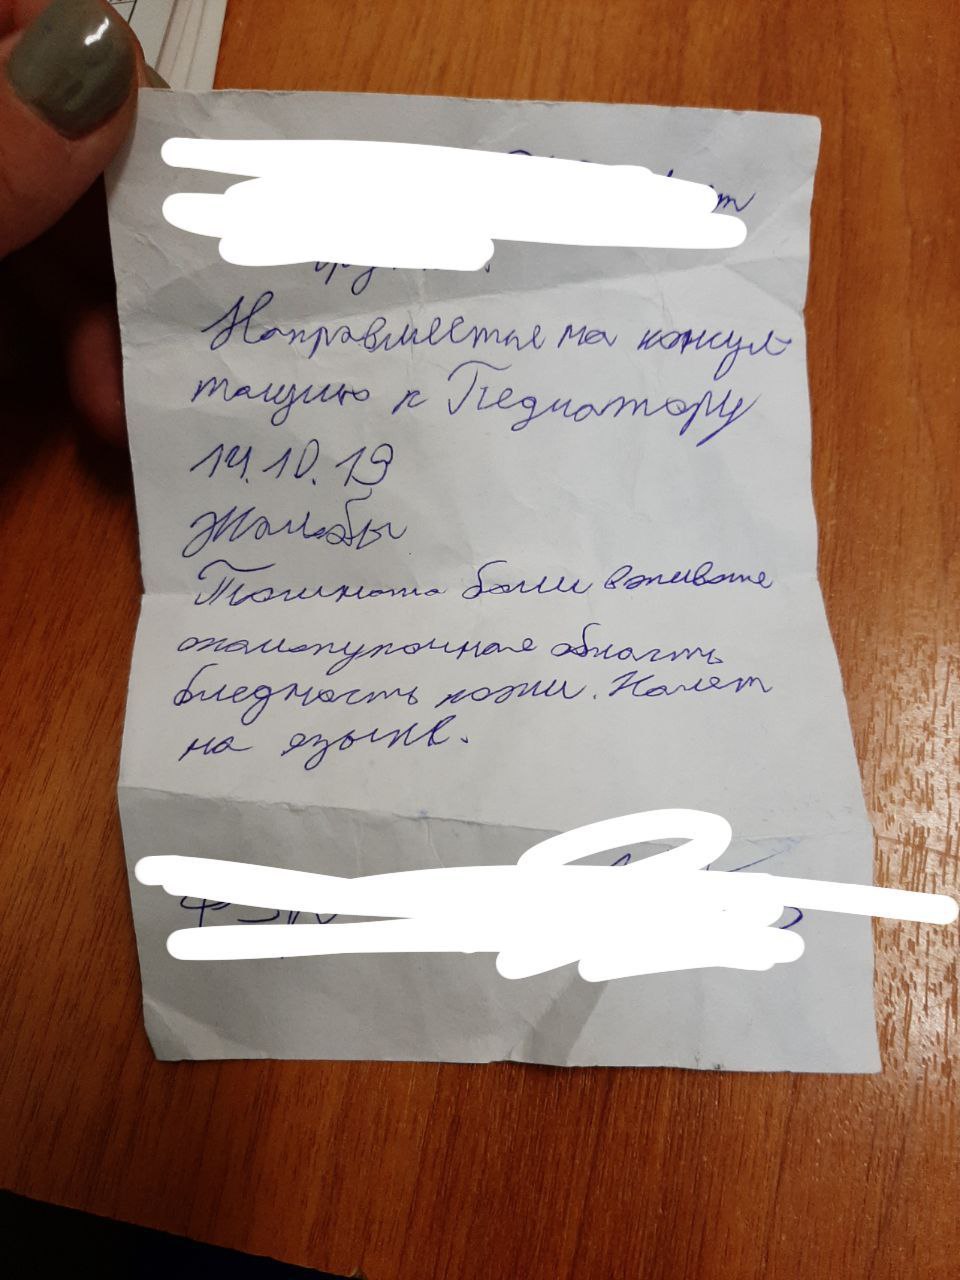 Направляется на консул-
тацию к Педиатору
14.10.19
Жалобы
Тошнота боли в животе
околопупочная область
бледность кожи. Налет
на языке.